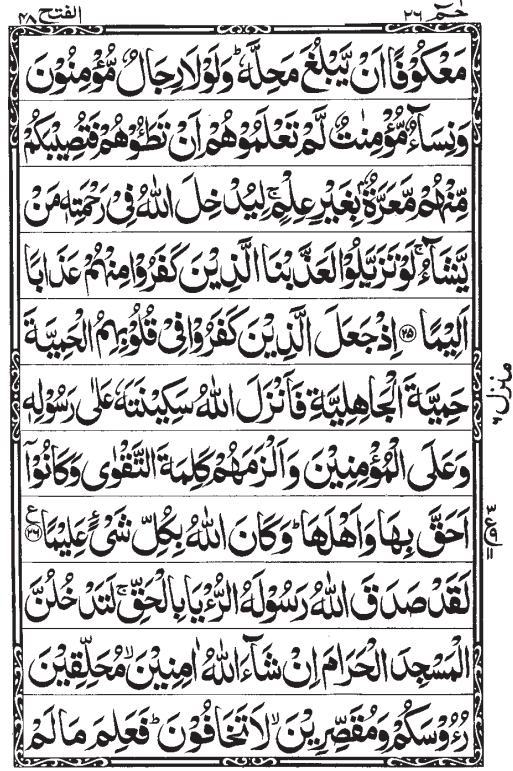 حٰمٓ ٢٦
الفتح ٤٨
مَعْكُوْفًا اَنْ يَّبْلُغَ مَحِلَّهٗ ؕ وَلَوْلَا رِجَالٌ مُّؤْمِنُوْنَ
وَنِسَآءٌ مُّؤْمِنٰتٌ لَّمْ تَعْلَمُوْهُمْ اَنْ تَطَـُٔوْهُمْ فَتُصِيْبَكُمْ
مِّنْهُمْ مَّعَرَّةٌۢ بِغَيْرِ عِلْمٍ ۚ لِيُدْخِلَ اللّٰهُ فِىْ رَحْمَتِهٖ مَنْ
يَّشَآءُ ۚ لَوْ تَزَيَّلُوْا لَعَذَّبْنَا الَّذِيْنَ كَفَرُوْا مِنْهُمْ عَذَابًا
اَلِيْمًا ﴿٢٥﴾ اِذْ جَعَلَ الَّذِيْنَ كَفَرُوْا فِىْ قُلُوْبِهِمُ الْحَمِيَّةَ
حَمِيَّةَ الْجَاهِلِيَّةِ فَاَنْزَلَ اللّٰهُ سَكِيْنَتَهٗ عَلٰى رَسُوْلِهٖ
وَعَلَى الْمُؤْمِنِيْنَ وَاَلْزَمَهُمْ كَلِمَةَ التَّقْوٰى وَكَانُوْۤا
اَحَقَّ بِهَا وَاَهْلَهَا ؕ وَكَانَ اللّٰهُ بِكُلِّ شَىْءٍ عَلِيْمًا ﴿٢٦﴾ ع
لَقَدْ صَدَقَ اللّٰهُ رَسُوْلَهُ الرُّءْيَا بِالْحَقِّ ۚ لَتَدْخُلُنَّ
الْمَسْجِدَ الْحَرَامَ اِنْ شَآءَ اللّٰهُ اٰمِنِيْنَ ۙ مُحَلِّقِيْنَ
رُءُوْسَكُمْ وَمُقَصِّرِيْنَ ۙ لَا تَخَافُوْنَ ؕ فَعَلِمَ مَا لَمْ
منزل ٦